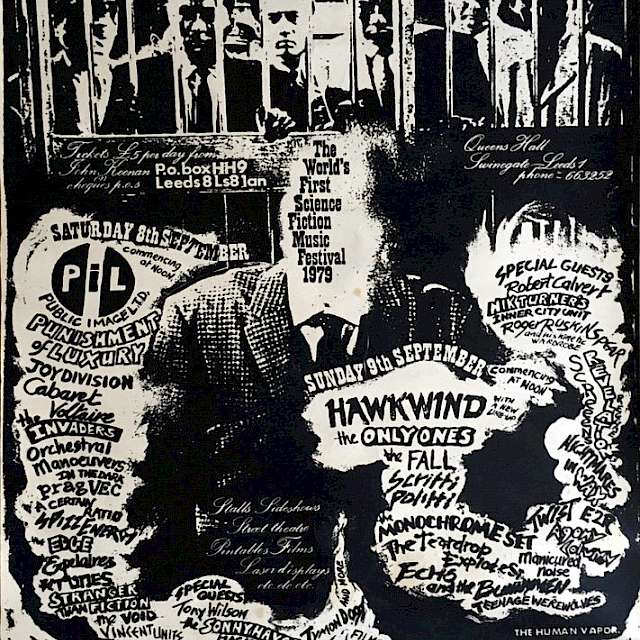 Tickets £5 per day from
John Keenan P.o.box HH9
cheques p.o.s Leeds 8 Ls8 1an
Queens Hall
Swinegate - Leeds 1
phone - 663252
The
World's
First
Science
Fiction
Music
Festival
1979
SATURDAY 8th SEPTEMBER
commencing
at NOON
PiL
PUBLIC IMAGE LTD.
PUNISHMENT
of LUXURY
JOY DIVISION
Cabaret
Voltaire
the INVADERS
Orchestral
Manoeuvers
IN THE DARK
Pragvec
A CERTAIN
RATIO
SPIZZ ENERGY
the EDGE
Expelaires
STRANGER
THAN FICTION
the VOID
VINCENT UNITS
SPECIAL
GUESTS
Tony Wilson
SUNDAY 9th SEPTEMBER
commencing
AT NOON
HAWKWIND
WITH
A NEW
LINE UP
the ONLY ONES
the FALL
Scritti
Politti
MONOCHROME SET
The Teardrop
Explodes
Echo
and the BUNNYMEN
TEENAGE WEREWOLVES
SPECIAL GUESTS
Robert Calvert
NIK TURNER'S
INNER CITY UNIT
Roger RUSKIN SPEAR
and his KINETIC
WARDROBE
NIGHTMARES
in WAX
TWIST
manicured
noise
Stalls Sideshows
Street theatre
Pintables Films
Laser displays
etc. etc. etc.
THE HUMAN VAPOR